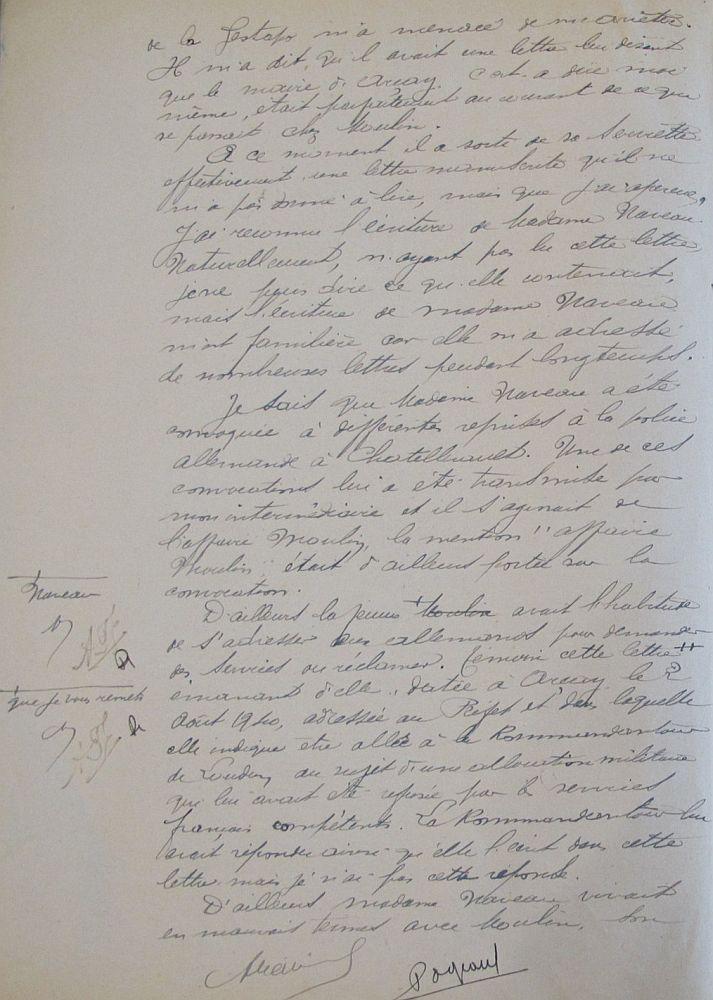 de la Gestapo m'a menacé de m'arrêter.
Il m'a dit, qu'il avait une lettre lui disant
que le maire d'Arcay c'est a dire moi
même, était parfaitement au courant de ce que
se passait chez Moulin.
A ce moment il a sorti de sa serviette
effectivement une lettre manuscrite qu'il ne
m'a pas donné à lire, mais que j'ai aperçue,
j'ai reconnu l'écriture de Madame Naveau
Naturellement, n'ayant pas lu cette lettre,
je ne puis dire ce qu'elle contenait,
mais l'écriture de madame Naveau
m'est familière car elle m'a adressé
de nombreuses lettres pendant longtemps.
Je sais que Madame Naveau a été
convoquée à différentes reprises à la police
allemande à Chatellerault. Une de ces
convocations lui a été transmise par
mon intermédiaire et il s'agissait de
l'affaire Moulin, la mention "affaire
Moulin" était d'ailleurs portée sur la
convocation.
D'ailleurs la femme Moulin avait l'habitude
de s'adresser aux allemands pour demander
des services ou réclamer. Témoin cette lettre ++
émanant d'elle, datée à Arcay le 2
Août 1940, adressée au Préfet et dans laquelle
elle indique être allée à la Kommandantur
de Loudun au sujet d'une allocation militaire
qui lui avait été refusée par les services
français compétents. La Kommandantur lui
avait répondu ainsi qu'elle l'écrit dans cette
lettre mais je n'ai pas cette réponse.
D'ailleurs madame Naveau vivait
en mauvais termes avec Moulin, son
+ Naveau
++ que je vous remets